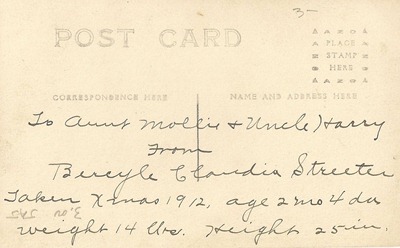 3-
POST CARD
AZO
PLACE
STAMP
HERE
AZO
CORRESPONDENCE HERE
NAME AND ADDRESS HERE
To Aunt Mollie & Uncle Harry
From
Bercyle Claudia Streeter
Taken Xmas 1912, age 2 mo 4 da
weight 14 lbs. Height 25 in.